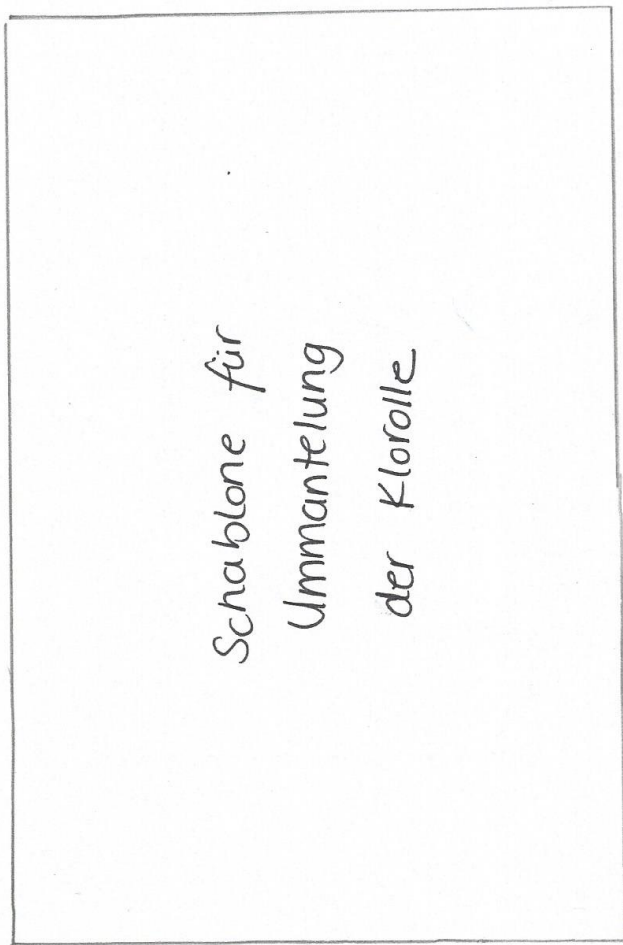 Schablone für
Ummantelung
der Klorolle